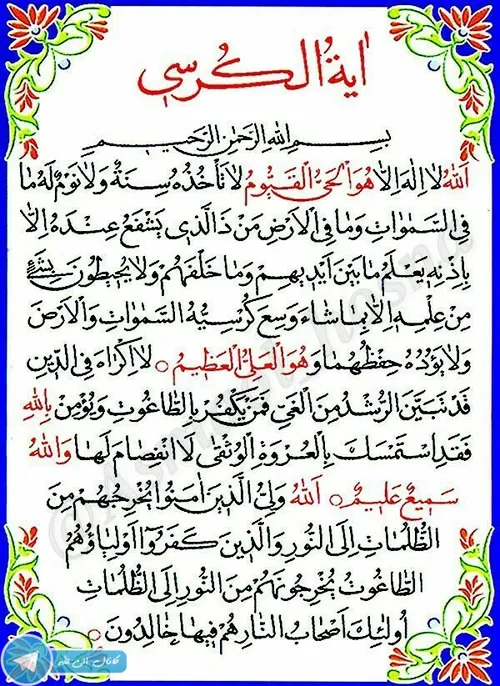 اٰیةُ الکُرسی
بِسمِ اللهِ الرَّحمٰنِ الرَّحیمِ
اَللهُ لا اِلٰهَ اِلّا هُوَ الْحَیُّ الْقَیُّومُ لا تَأخُذُهُ سِنَةٌ وَلا نَوْمٌ لَهُ ما
فِی السَّمٰواتِ وَما فِی الْاَرْضِ مَنْ ذَا الَّذی یَشْفَعُ عِنْدَهُ اِلّا
بِاِذْنِهِ یَعْلَمُ ما بَیْنَ اَیْدیهِمْ وَما خَلْفَهُمْ وَلا یُحیطُونَ بِشَیْءٍ
مِنْ عِلْمِهِ اِلّا بِما شاءَ وَسِعَ کُرْسِیُّهُ السَّمٰواتِ وَالْاَرْضَ
وَلا یَؤُدُهُ حِفْظُهُما وَهُوَ الْعَلِیُّ الْعَظیمُ ○ لا اِکْراهَ فِی الدّینِ
قَدْ تَبَیَّنَ الرُّشْدُ مِنَ الْغَیِّ فَمَنْ یَکْفُرْ بِالطّاغُوتِ وَیُؤْمِنْ بِاللهِ
فَقَدِ اسْتَمْسَكَ بِالْعُرْوَةِ الْوُثْقٰی لَا انْفِصامَ لَها وَاللهُ
سَمیعٌ عَلیمٌ ○ اَللهُ وَلِیُّ الَّذینَ اٰمَنُوا یُخْرِجُهُمْ مِنَ
الظُّلُماتِ اِلَی النُّورِ وَالَّذینَ کَفَرُوا اَوْلِیاؤُهُمُ
الطّاغُوتُ یُخْرِجُونَهُمْ مِنَ النُّورِ اِلَی الظُّلُماتِ
اُولٰئِكَ اَصْحابُ النّارِ هُمْ فیها خالِدُونَ ○